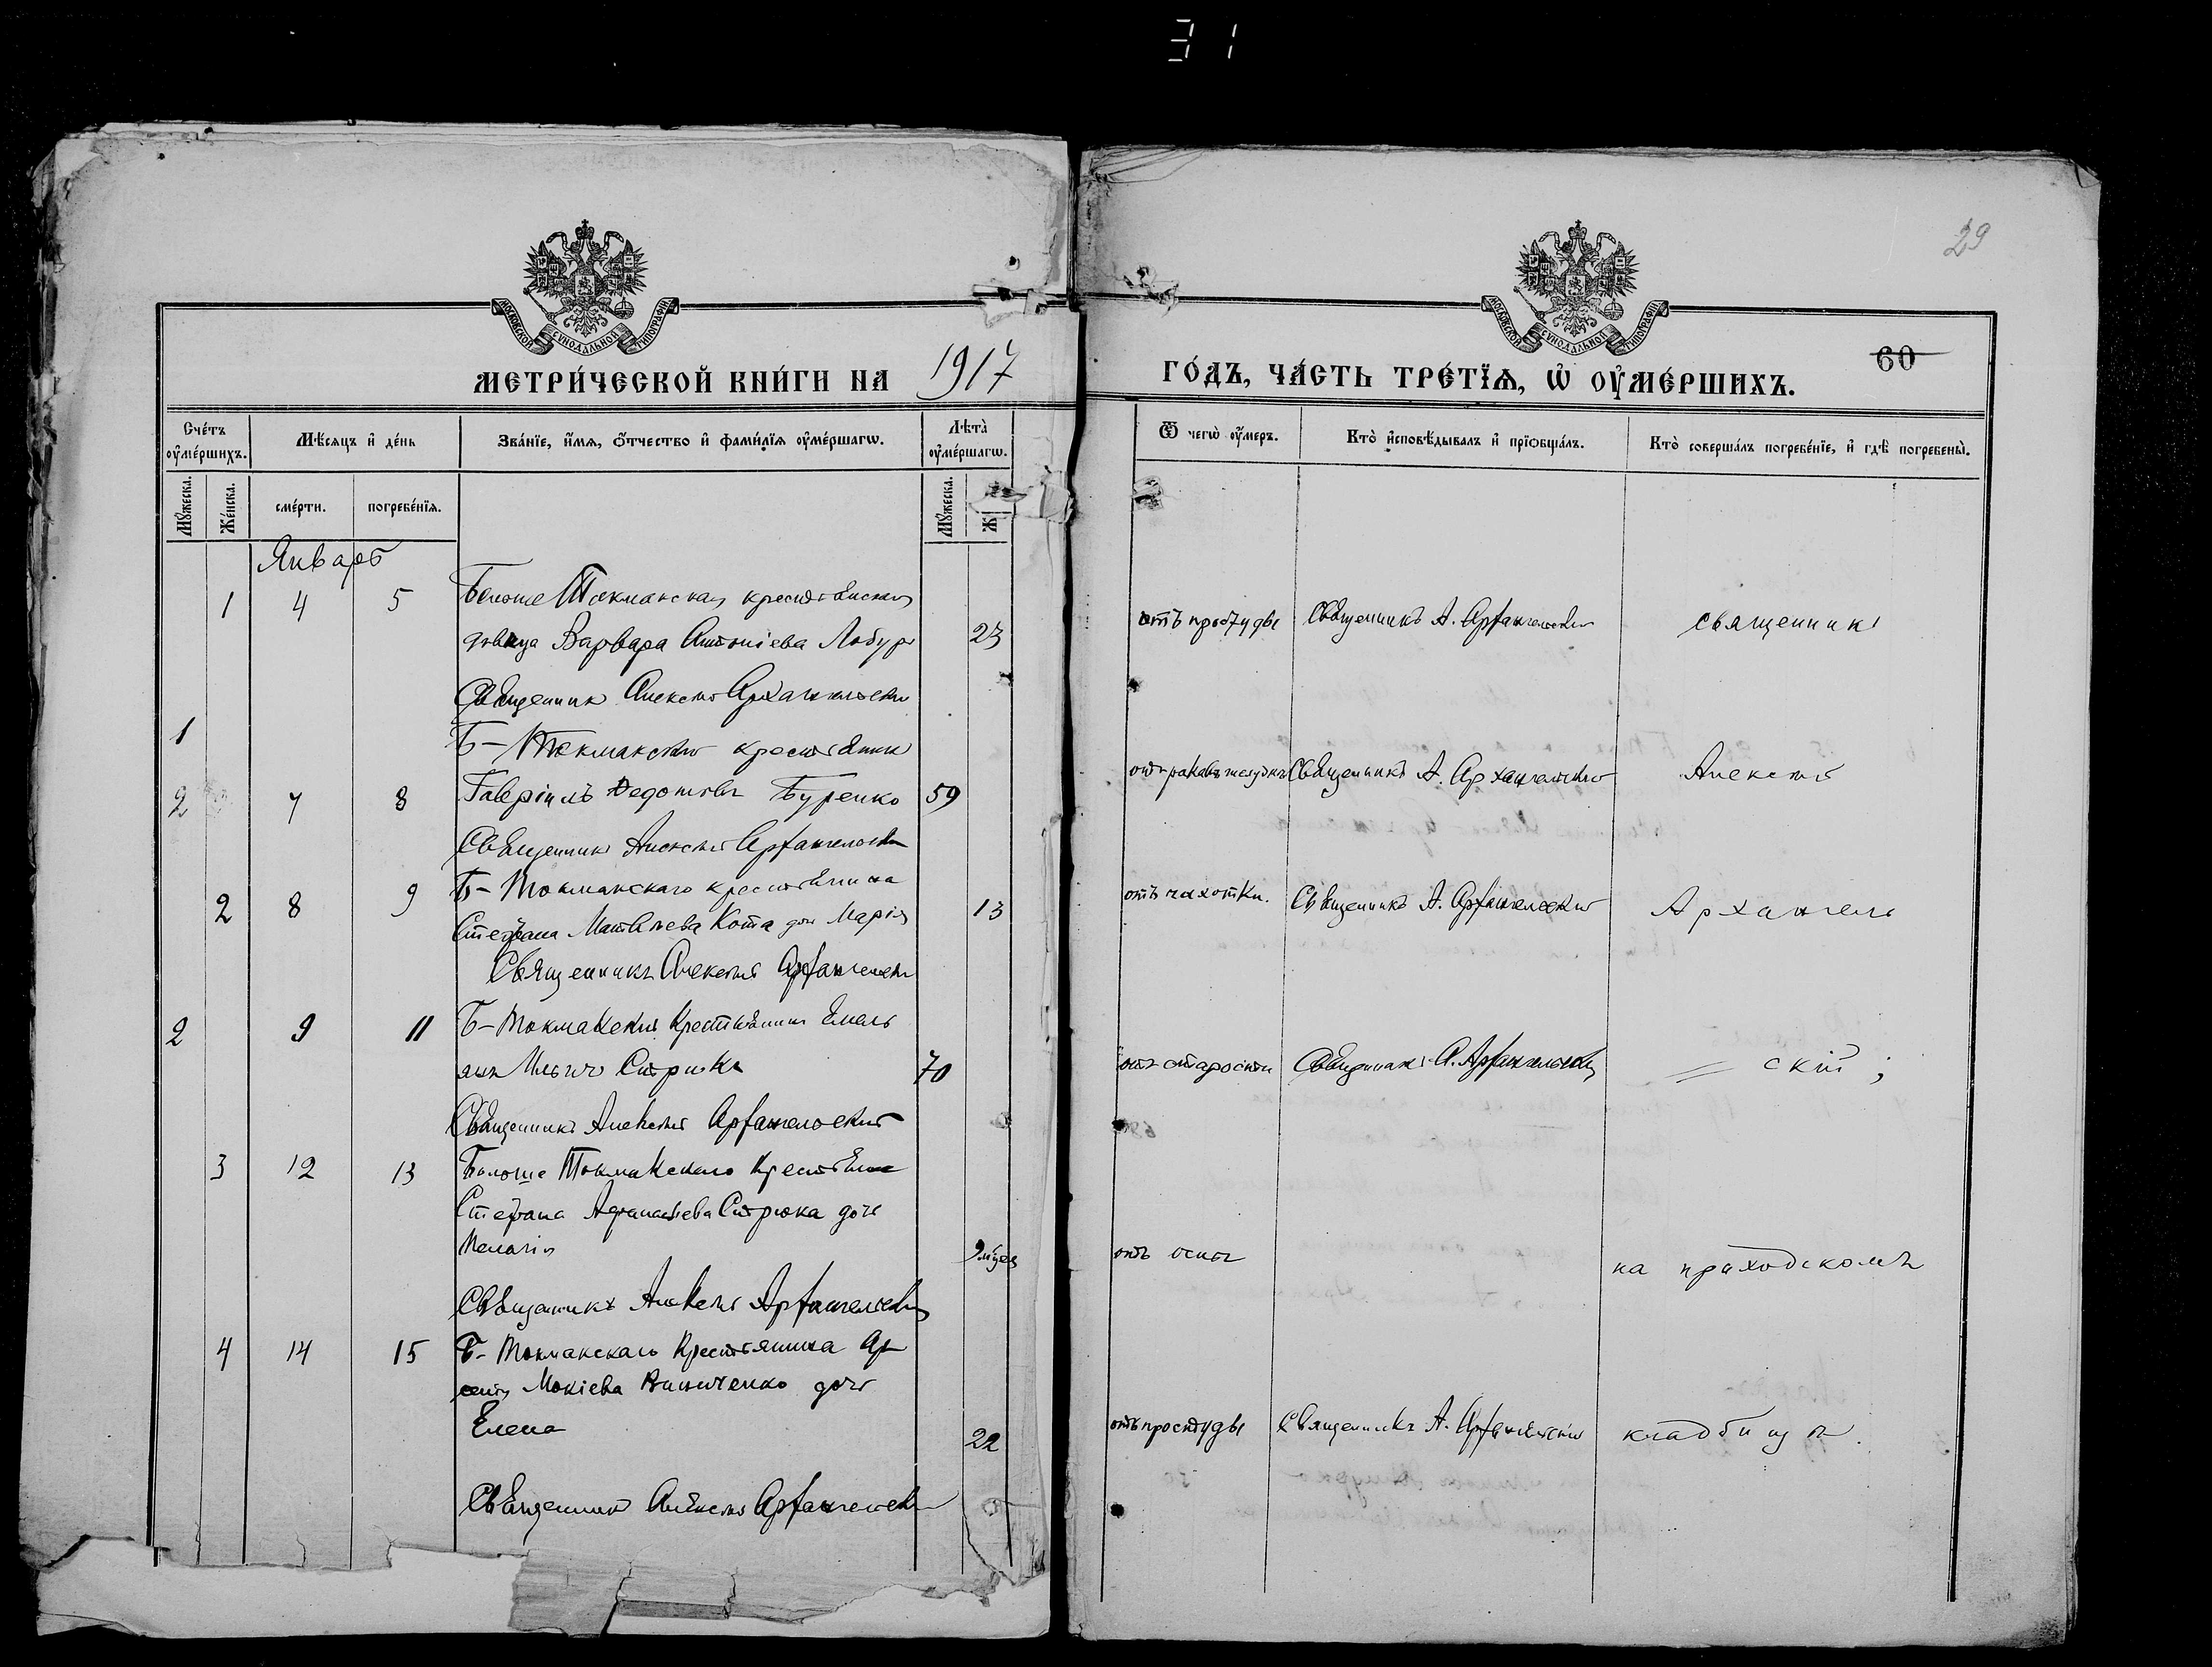 31
29
МОСКОВСКОЙ СѴНОДАЛЬНОЙ ТИПОГРАФІИ
МОСКОВСКОЙ СѴНОДАЛЬНОЙ ТИПОГРАФІИ
60
МЕТРИ́ЧЕСКОЙ КНИ́ГИ НА 1917 ГО́ДЪ, ЧА́СТЬ ТРЕ́ТЇѦ, Ѡ҆ ОУ҆МЕ́РШИХЪ.
Сче́тъ оу҆ме́ршихъ.
Мѣ́сяцъ и҆ де́нь
Зва́нїе, и҆́мѧ, ѻ҆́тчество и҆ фами́лїѧ оу҆ме́ршагѡ.
Лѣта̀ оу҆ме́ршагѡ.
Ѿ чегѡ̀ оу҆́меръ.
Кто̀ и҆сповѣ́дывалъ и҆ прїѡбща́лъ.
Кто̀ соверша́лъ погребе́нїе, и҆ гдѣ̀ погребены̀.
Мꙋ́жеска.
Же́нска.
сме́рти.
погребе́нїѧ.
Мꙋ́жеска.
Ж
Январь
1 4 5 Больше Токмакская крестьянская
девица Варвара Антоніева 23 отъ простуды Священникъ А. Архангельскій священникъ
Священник Алексій Архангельскій
1
Б- Токмакскій крестьянин
2 7 8 Гавріилъ Федотовъ Буренко 59 отъ рака въ желудке Священникъ А. Архангельскій Алексій
Священник Алексій Архангельскій
2 8 9 Б- Токмакскаго крестьянина
Стефана Матвѣева Кота дочь Марія 13 отъ чахотки. Священникъ А. Архангельскій Архангель
Священникъ Алексій Архангельскій
2 9 11 Б- Токмакскій Крестьянинъ Емель
янъ Ильичъ 70 отъ старости Священникъ А. Архангельскій = скій ;
Священникъ Алексій Архангельскій
3 12 13 Больше Токмакскаго Крестьянина
Стефана Афанасьева Стрюка дочь
Пелагія 9 мѣсяц отъ оспы на приходскомъ
Священникъ Алексій Архангельскій
4 14 15 Б- Токмакскаго Крестьянина Ар
сенія Мокіева Винниченко дочь
Елена 22 отъ простуды Священникъ А. Архангельскій кладбищѣ.
Священник Алексій Архангельскій